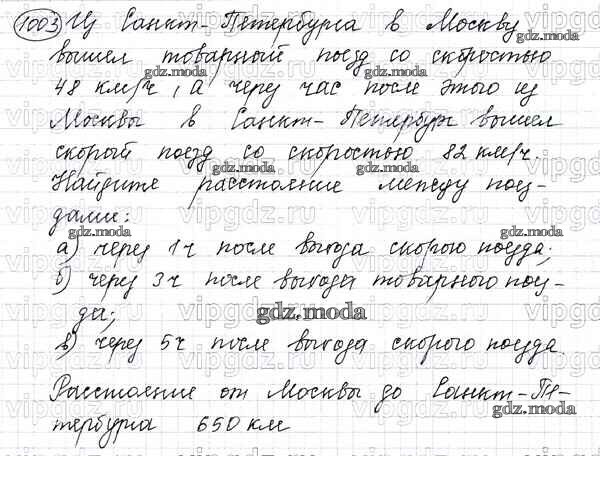 1003 Из Санкт-Петербурга в Москву
вышел товарный поезд со скоростью
48 км/ч, а через час после этого из
Москвы в Санкт-Петербург вышел
скорый поезд со скоростью 82 км/ч.
Найдите расстояние между поез-
дами:
а) через 1ч после выхода скорого поезда;
б) через 3ч после выхода товарного поез-
да;
в) через 5ч после выхода скорого поезда.
Расстояние от Москвы до Санкт-Пе-
тербурга 650 км
gdz.moda
vipgdz.ru